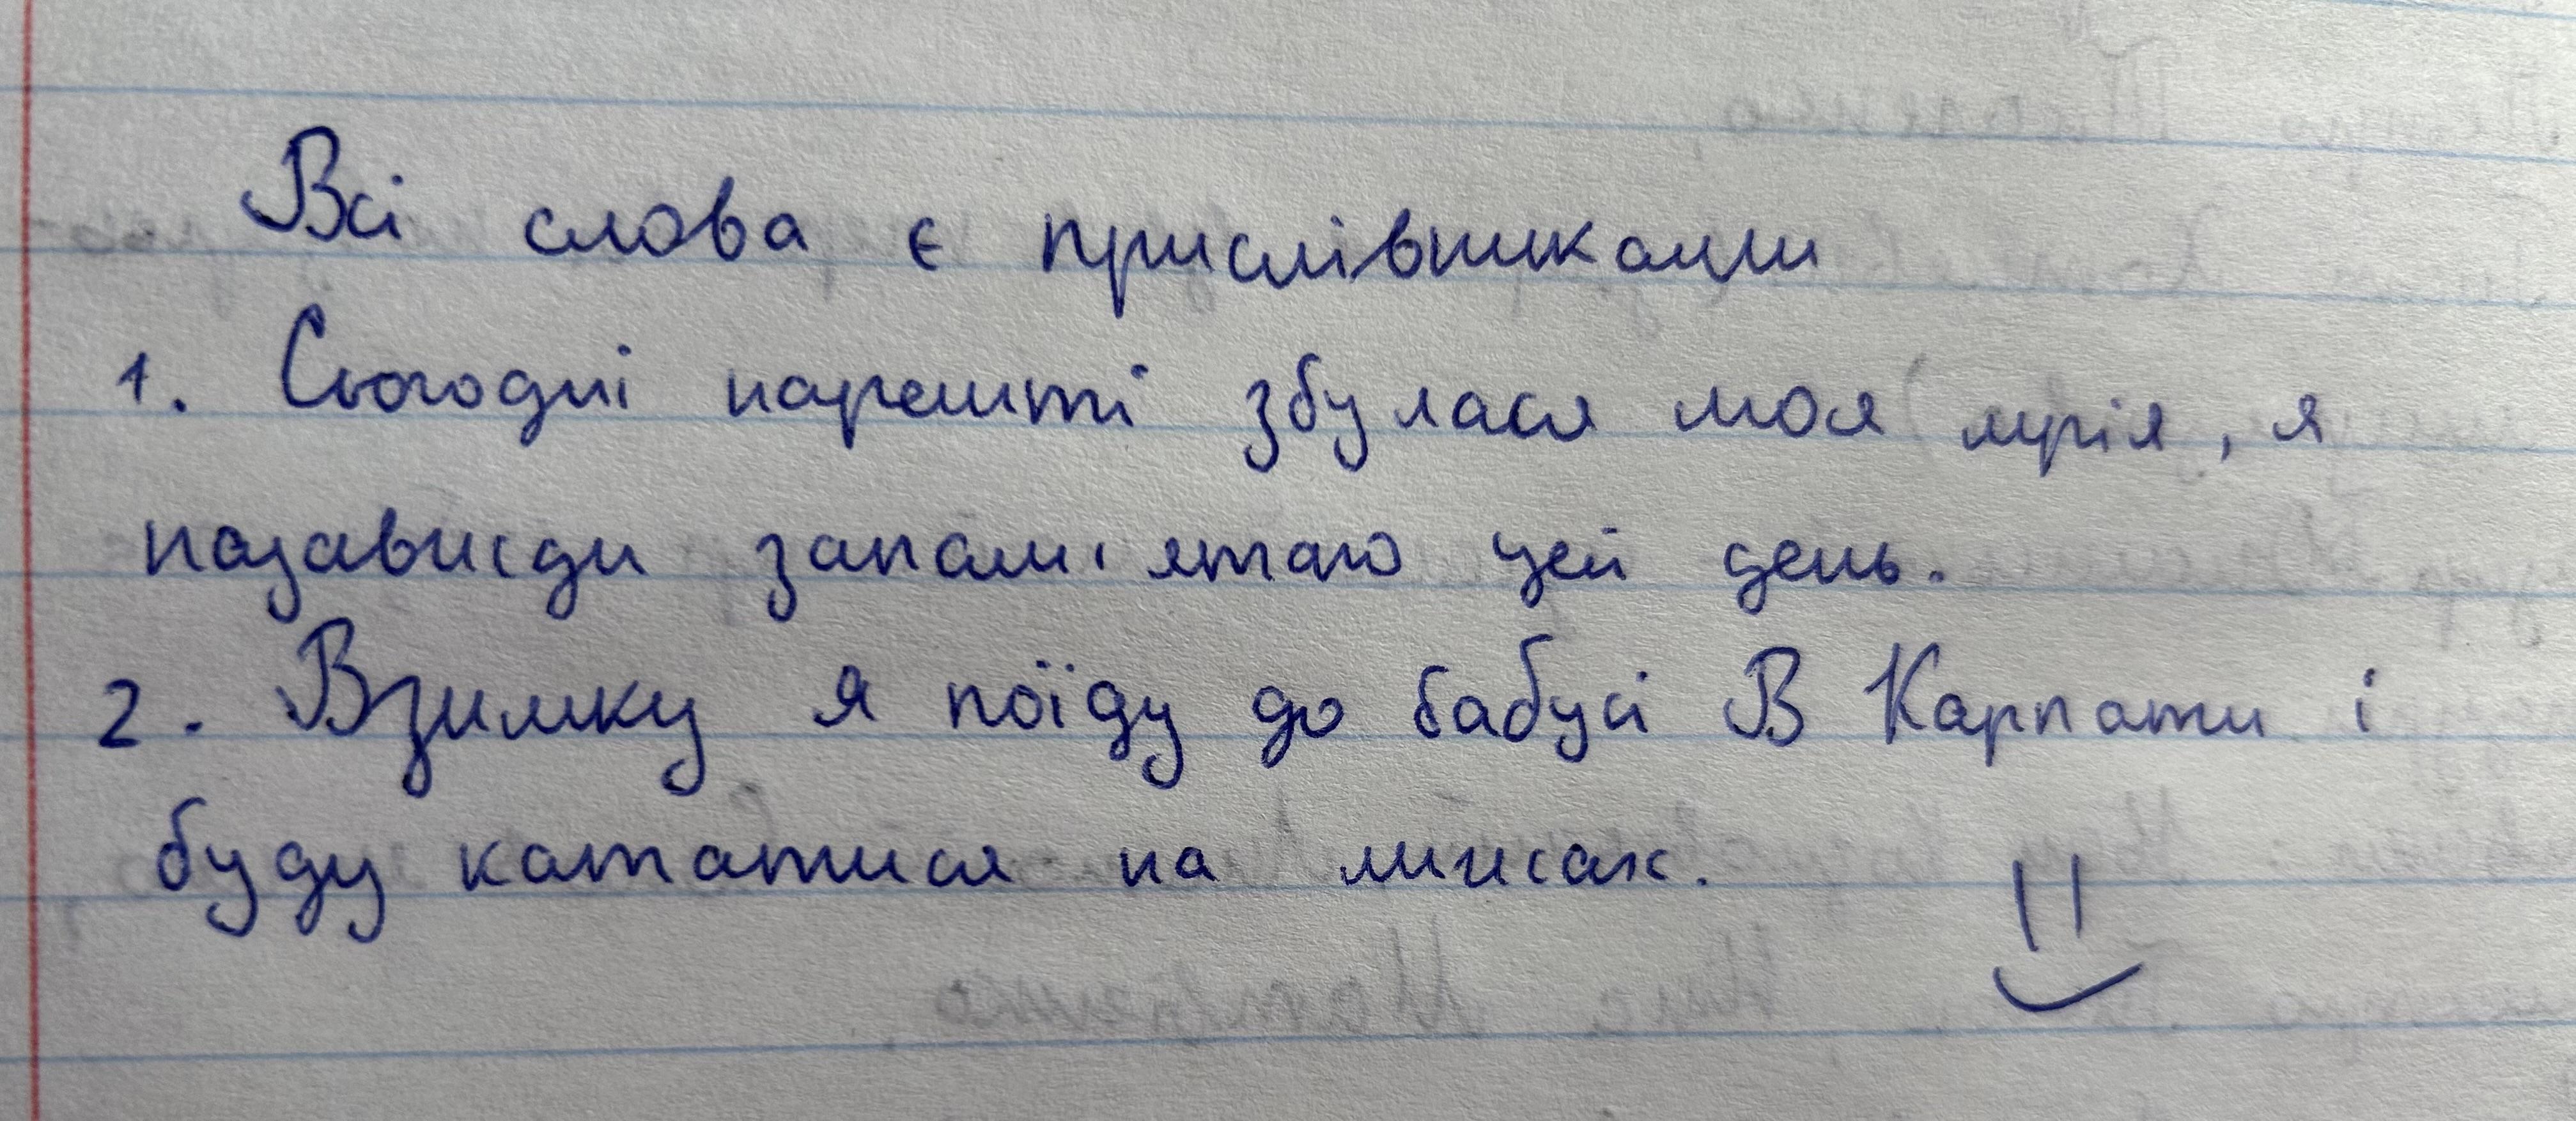 Всі слова є прислівниками
1. Сьогодні нарешті збулася моя мрія, я
назавжди запам'ятаю цей день.
2. Взимку я поїду до бабусі В Карпати і
буду кататися на лижах.